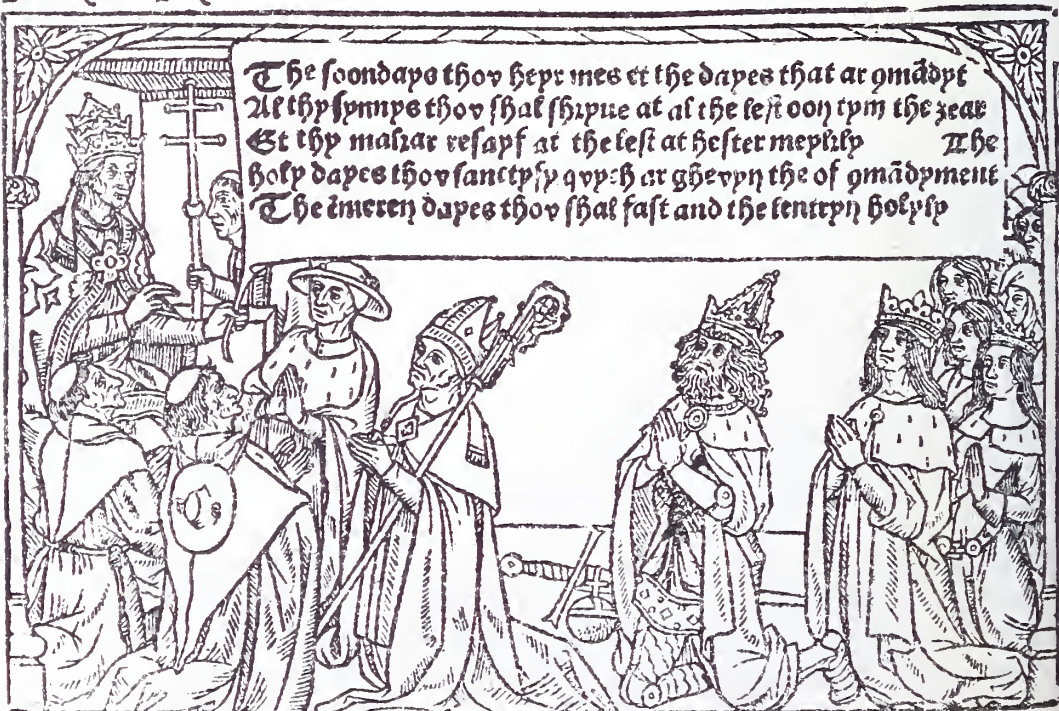 The soondays thov heyr mes et the dayes that ar ꝯmãdyt
Al thy synnys thov shal shryue at al the lest oon tym the zear
Et thy mahar resayf at the lest at hester meyklyly The
holy dayes thov sanctyfy qvych ar ghevyn the of ꝯmãdyment
The imeren dayes thov shal fast and the lentryn holyly